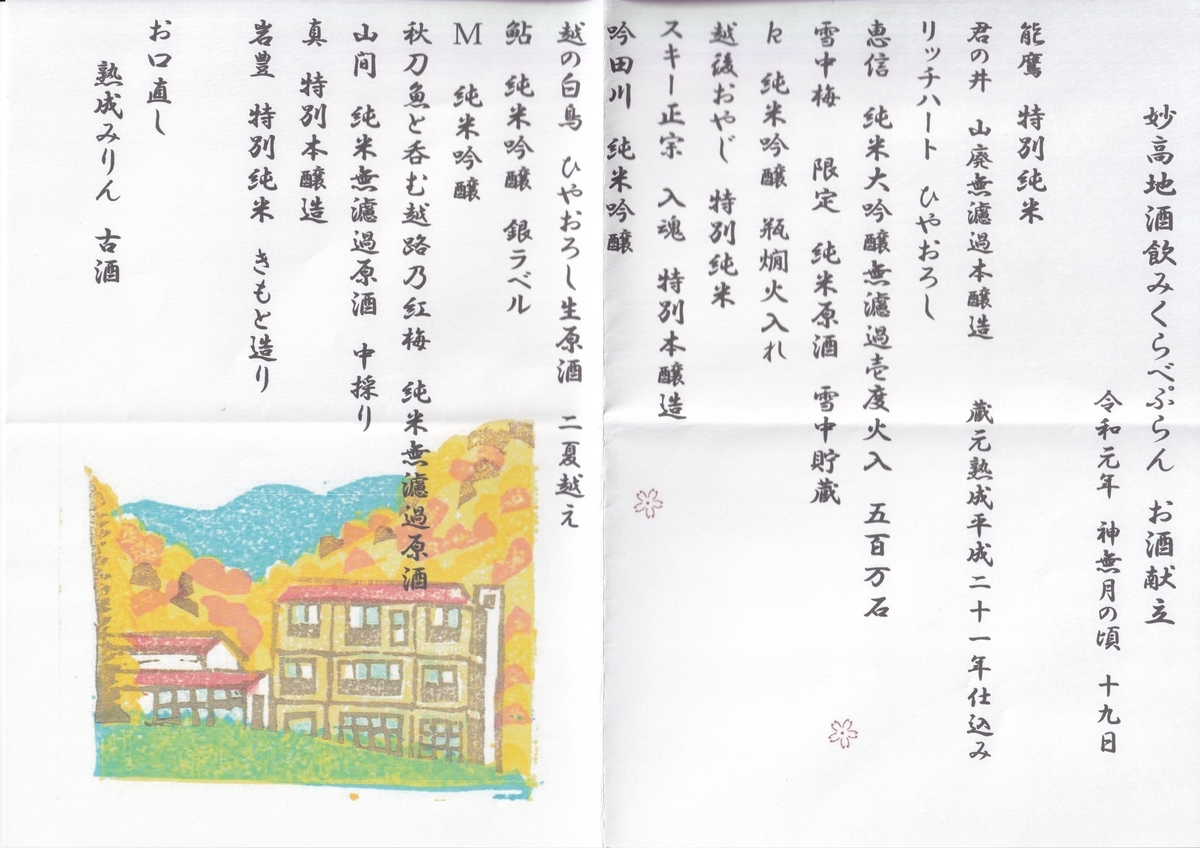 妙高地酒飲みくらべぷらん　お酒献立
令和元年　神無月の頃　十九日
能鷹　特別純米
君の井　山廃無濾過本醸造　蔵元熟成平成二十一年仕込み
リッチハート　ひやおろし
恵信　純米大吟醸無濾過壱度火入　五百万石
雪中梅　限定　純米原酒　雪中貯蔵
k　純米吟醸　瓶燗火入れ
越後おやじ　特別純米
スキー正宗　入魂　特別本醸造
吟田川　純米吟醸
越の白鳥　ひやおろし生原酒　二夏越え
鮎　純米吟醸　銀ラベル
M　純米吟醸
秋刀魚と呑む越路乃紅梅　純米無濾過原酒
山間　純米無濾過原酒　中採り
真　特別本醸造
岩豊　特別純米　きもと造り
お口直し
熟成みりん　古酒